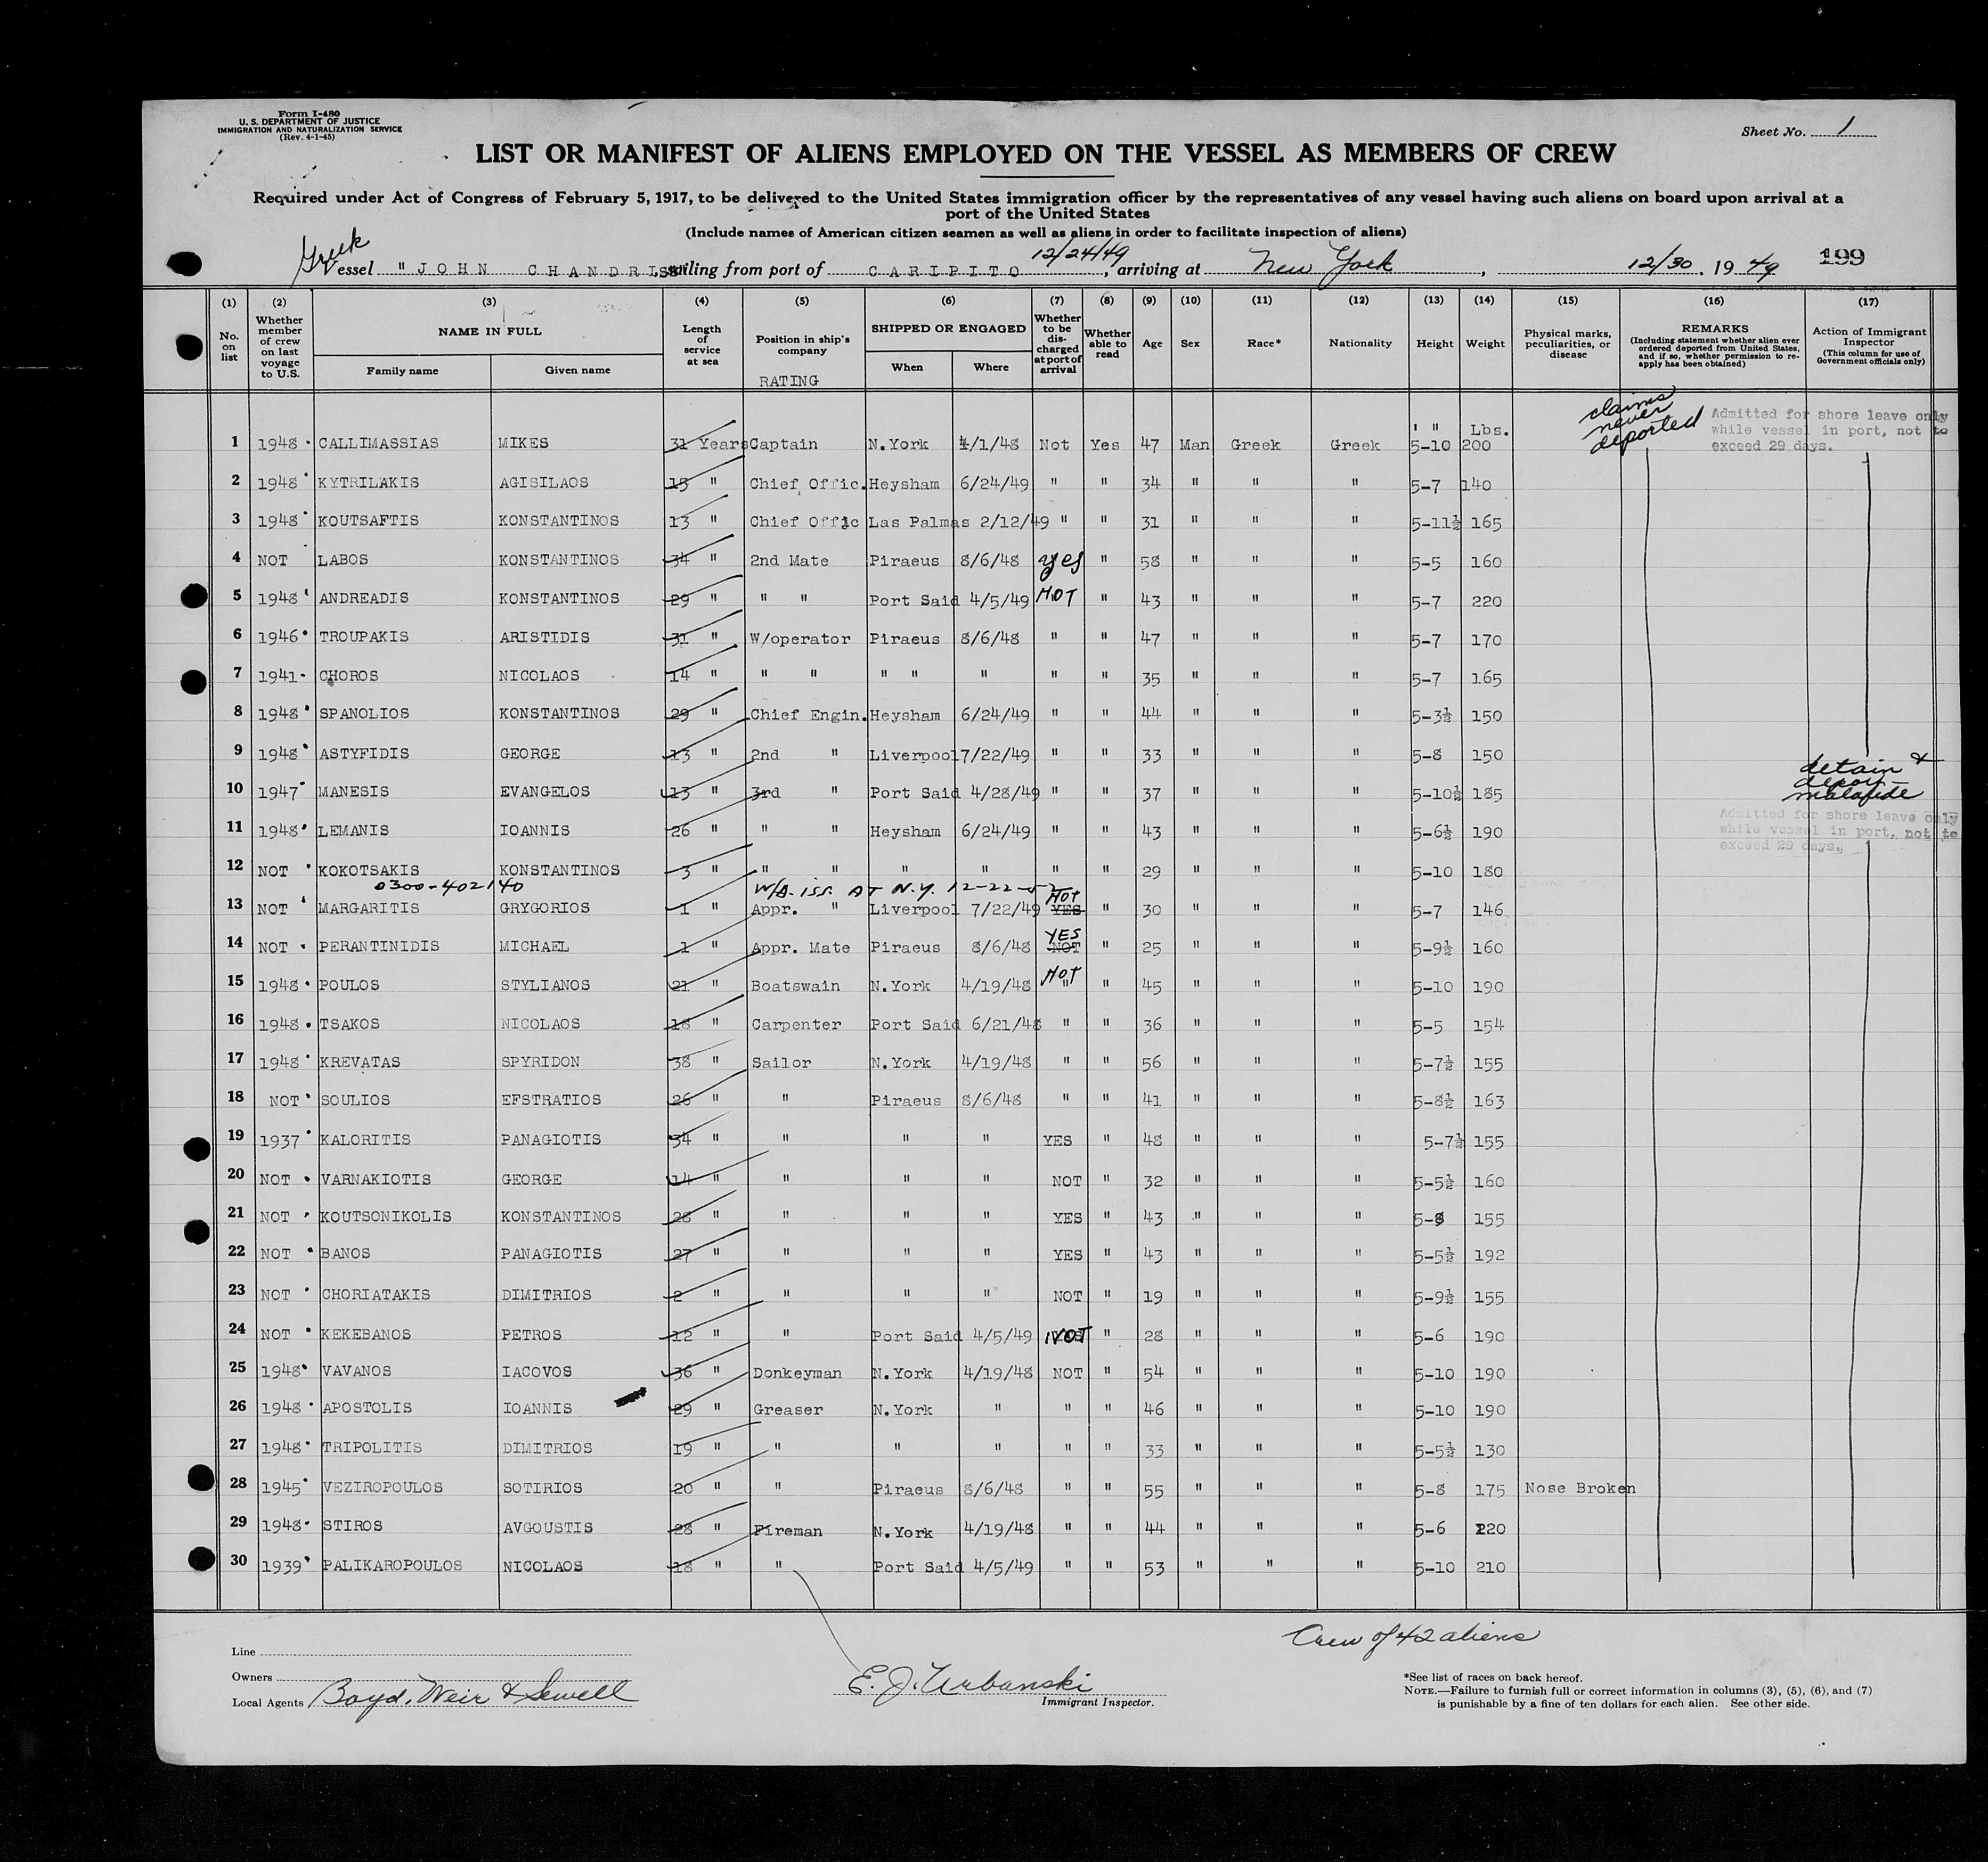 Form I-480
U. S. DEPARTMENT OF JUSTICE
IMMIGRATION AND NATURALIZATION SERVICE
(Rev. 4-1-45)
Sheet No. 1
LIST OR MANIFEST OF ALIENS EMPLOYED ON THE VESSEL AS MEMBERS OF CREW
Required under Act of Congress of February 5, 1917, to be delivered to the United States immigration officer by the representatives of any vessel having such aliens on board upon arrival at a
port of the United States
(Include names of American citizen seamen as well as aliens in order to facilitate inspection of aliens)
Greek 12/24/49
Vessel "JOHN CHANDRIS" sailing from port of CARIPITO, arriving at New York, 12/30, 1949 199
(1) (2) (3) (4) (5) (6) (7) (8) (9) (10) (11) (12) (13) (14) (15) (16) (17)
No. on list Whether member of crew on last voyage to U.S. NAME IN FULL Family name Given name Length of service at sea Position in ship's company RATING SHIPPED OR ENGAGED When Where Whether to be discharged at port of arrival Whether able to read Age Sex Race* Nationality Height Weight Physical marks, peculiarities, or disease REMARKS (Including statement whether alien ever ordered deported from United States, and if so, whether permission to reapply has been obtained) Action of Immigrant Inspector (This column for use of Government officials only)
claims never deported
Admitted for shore leave only
while vessel in port, not to
exceed 29 days.
' " Lbs.
1 1948 CALLIMASSIAS MIKES 31 Years Captain N.York 4/1/48 Not Yes 47 Man Greek Greek 5-10 200
2 1948 KYTRILAKIS AGISILAOS 15 " Chief Offic. Heysham 6/24/49 " " 34 " " " 5-7 140
3 1948 KOUTSAFTIS KONSTANTINOS 13 " Chief Offic Las Palmas 2/12/49 " " 31 " " " 5-11½ 165
4 NOT LABOS KONSTANTINOS 34 " 2nd Mate Piraeus 8/6/48 yes " 58 " " " 5-5 160
5 1948 ANDREADIS KONSTANTINOS 29 " " " Port Said 4/5/49 NOT " 43 " " " 5-7 220
6 1946 TROUPAKIS ARISTIDIS 31 " W/operator Piraeus 8/6/48 " " 47 " " " 5-7 170
7 1941 CHOROS NICOLAOS 14 " " " " " " " " 35 " " " 5-7 165
8 1948 SPANOLIOS KONSTANTINOS 29 " Chief Engin. Heysham 6/24/49 " " 44 " " " 5-3½ 150
9 1948 ASTYFIDIS GEORGE 13 " 2nd " Liverpool 7/22/49 " " 33 " " " 5-8 150
10 1947 MANESIS EVANGELOS 13 " 3rd " Port Said 4/28/49 " " 37 " " " 5-10½ 185 detain & deport malafide
Admitted for shore leave only
while vessel in port, not to
exceed 29 days.
11 1948 LEMANIS IOANNIS 26 " " " Heysham 6/24/49 " " 43 " " " 5-6½ 190
12 NOT KOKOTSAKIS KONSTANTINOS 3 " " " " " " " 29 " " " 5-10 180
0300-402140 W/A iss. AT N.Y. 12-22-52
13 NOT MARGARITIS GRYGORIOS 1 " Appr. " Liverpool 7/22/49 YES NOT " 30 " " " 5-7 146
14 NOT PERANTINIDIS MICHAEL 1 " Appr. Mate Piraeus 8/6/48 NOT YES " 25 " " " 5-9½ 160
15 1948 POULOS STYLIANOS 21 " Boatswain N.York 4/19/48 " NOT " 45 " " " 5-10 190
16 1948 TSAKOS NICOLAOS 18 " Carpenter Port Said 6/21/48 " " 36 " " " 5-5 154
17 1948 KREVATAS SPYRIDON 38 " Sailor N.York 4/19/48 " " 56 " " " 5-7½ 155
18 NOT SOULIOS EFSTRATIOS 26 " " Piraeus 8/6/48 " " 41 " " " 5-8½ 163
19 1937 KALORITIS PANAGIOTIS 34 " " " " YES " 48 " " " 5-7½ 155
20 NOT VARNAKIOTIS GEORGE 14 " " " " NOT " 32 " " " 5-5½ 160
21 NOT KOUTSONIKOLIS KONSTANTINOS 28 " " " " YES " 43 " " " 5-8 155
22 NOT BANOS PANAGIOTIS 27 " " " " YES " 43 " " " 5-5½ 192
23 NOT CHORIATAKIS DIMITRIOS 2 " " " " NOT " 19 " " " 5-9½ 155
24 NOT KEKEBANOS PETROS 12 " " Port Said 4/5/49 NOT " 28 " " " 5-6 190
25 1948 VAVANOS IACOVOS 36 " Donkeyman N.York 4/19/48 NOT " 54 " " " 5-10 190
26 1948 APOSTOLIS IOANNIS 29 " Greaser N.York " " " 46 " " " 5-10 190
27 1948 TRIPOLITIS DIMITRIOS 19 " " " " " " 33 " " " 5-5½ 130
28 1945 VEZIROPOULOS SOTIRIOS 20 " " Piraeus 8/6/48 " " 55 " " " 5-8 175 Nose Broken
29 1948 STIROS AVGOUSTIS 28 " Fireman N.York 4/19/48 " " 44 " " " 5-6 220
30 1939 PALIKAROPOULOS NICOLAOS 18 " " Port Said 4/5/49 " " 53 " " " 5-10 210
Crew of 42 aliens
Line
Owners
Local Agents Boyd, Weir & Sewell
E. J. Urbanski
Immigrant Inspector.
*See list of races on back hereof.
NOTE.—Failure to furnish full or correct information in columns (3), (5), (6), and (7)
is punishable by a fine of ten dollars for each alien. See other side.